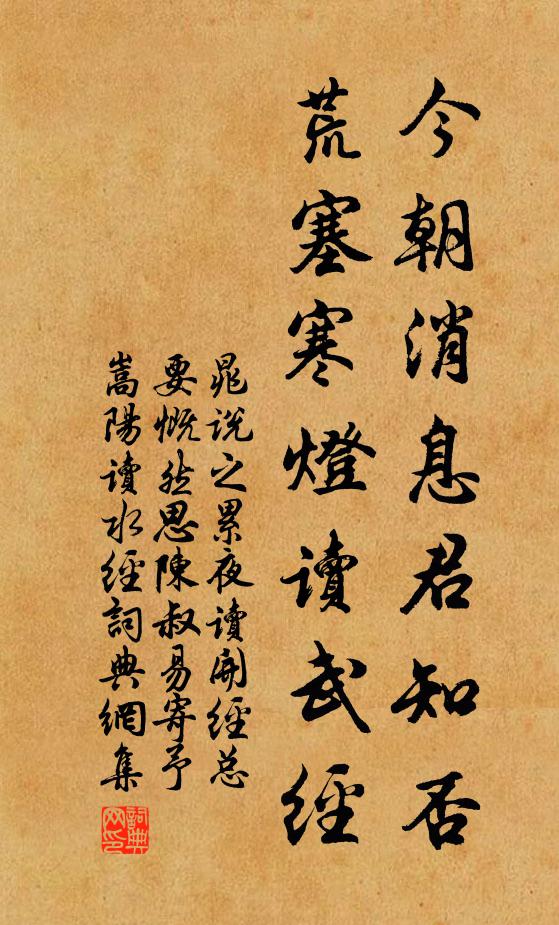 今朝消息君知否
荒塞寒燈讀武經
晁說之累夜讀開經总
要慨然思陳叔易寄予
嵩陽讀水經詞典網集
詞典网印